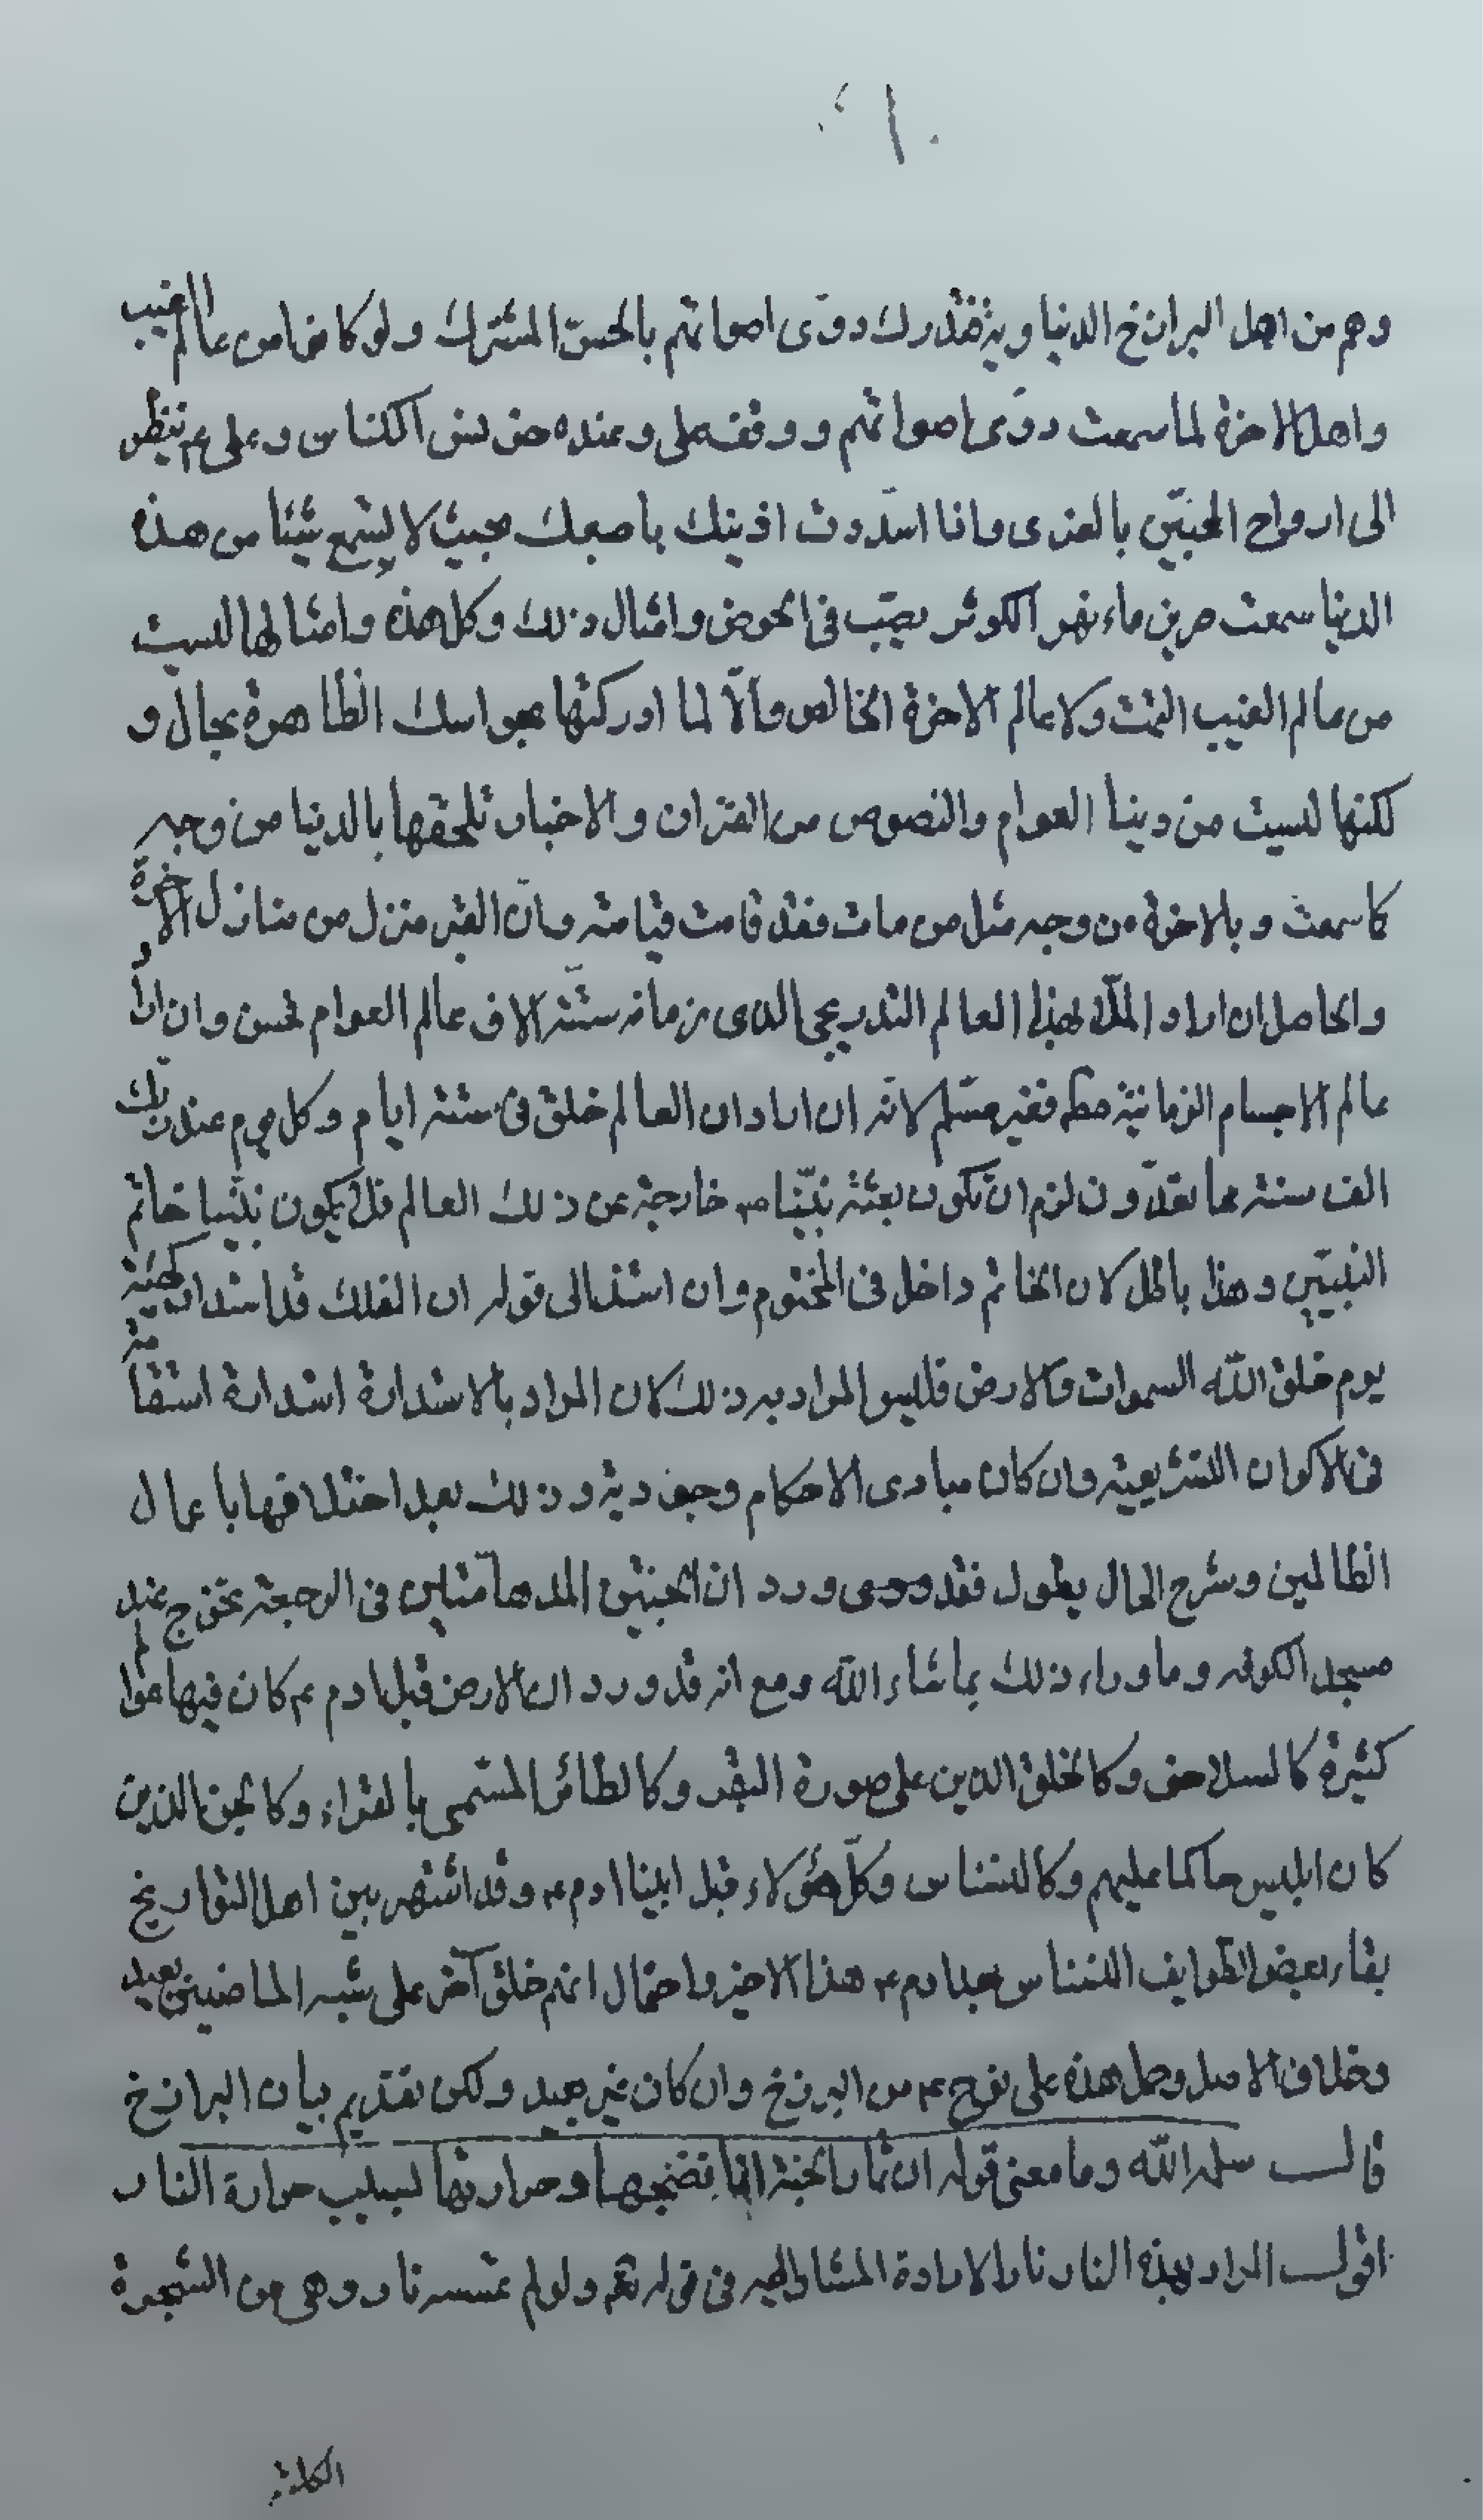 وهم من اهل البرازخ الدنيا وبه تقدر ك دوّى اصواتهم بالحسّ المشترك ولو كانوا من عالم الغيب
واهل الاخرة لما سمعت دوّى اصواتهم ووقف على وعنده حق بنى الكناس وعلى ع م ينظر
الى ارواح المحبّين بالغرى وانا اسدّوت اذنيك باصبعك بحيث لا يسمع شيئا من هذه
الدنيا سمعت صرير ماء نهر الكوثر يصبّ فى الحوض وامثال ذلك وكل هذه وامثالها ليست
من عالم الغيب البحت ولا عالم الاخرة الخالص والّا لما ادركتها بحواسك الظاهرة بحال و
لكنها ليست من دنيا العوام والنصوص من القران والاخبار تلحقها بالدنيا من وجه
كما سمعت وبالاخرة من وجه مثل من مات فقد قامت قيامته وانّ القبر منزل من منازل الاخرة
والحاصل ان اراد الملّا بهذا العالم التدريجى الذى زمانه ستّة الاف عالم العوام فحسن وان اراد
عالم الاجسام الزمانيّة مط فغير مسّلم لانّه ان اراد ان العالم خلق فى ستة ايام وكل يوم عند ربّك
الف سنة مما تعدّون لزم ان تكون بعثة نبيّنا ص خارجة عن ذلك العالم فلا يكون نبيّنا خاتم
النبيّين وهذا باطل لان الخاتم داخل فى المختوم وان استند الى قوله ان الفلك قد استدار كهيئته
يوم خلق الله السموات والارض فليس المراد به ذلك لان المراد بالاستدارة استدارة استقامة
فى الاكوان التشريعيّه وان كان مبادى الاحكام وجودية وذلك بعد اختلافها باعمال
الظالمين وشرح الحال يطول فقد روى ورد ان الجنتين المدهامّتاين فى الرجعة تخرج عند
مسجد الكوفه وما وراء ذلك بما شاء الله ومع انه قد ورد ان الارض قبل ادم ع م كان فيها عوالم
كثيرة كالسلاحف وكالخلق الذين على صورة البقر وكالطائر المسّمى بالقراء وكالجن الذين
كان ابليس حاكما عليهم وكالنسناس وكلّ هؤلاء قبل ابينا ادم ع م وقد اشتهر بين اهل التواريخ
بقاء بعض الطوايف النسناس بعد ادم ع م هذا الاخير واحتمال انهم خلق آخر على شبه الماضيين بعيد
وخلاف الاصل وحمل هذه على نوح ع م من البرزخ وان كان غير بعيد ولكن تقديم بيان البرازخ
قال سلمه الله وما معنى قوله ان ثمار الجنة انّما نضجها وحرارتها لسبب حرارة النار
اقول المراد بهذه النار نار الارادة المشار اليه فى قوله تعم ولو لم تمسسه نار وهى من الشجرة
الكلية